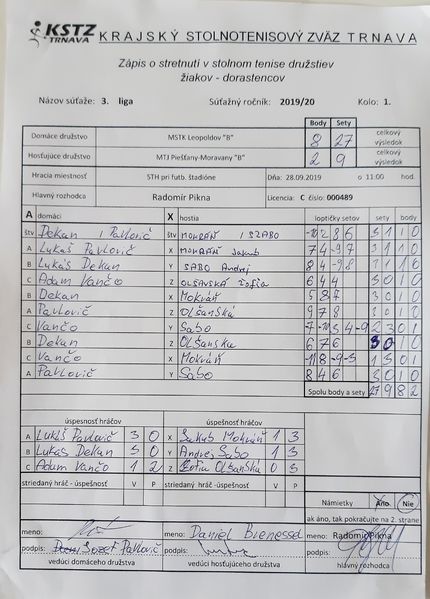 KSTZ TRNAVA KRAJSKÝ STOLNOTENISOVÝ ZVÄZ TRNAVA
Zápis o stretnutí v stolnom tenise družstiev
žiakov - dorastencov
Názov súťaže: 3. liga Súťažný ročník: 2019/20 Kolo: 1.
Body Sety
Domáce družstvo MSTK Leopoldov "B" 8 27 celkový výsledok
Hosťujúce družstvo MTJ Piešťany-Moravany "B" 2 9 celkový výsledok
Hracia miestnosť STH pri futb. štadióne Dňa: 28.09.2019 o 11:00 hod.
Hlavný rozhodca Radomír Pikna Licencia: C číslo: 000489
A domáci X hostia loptičky setov sety body
štv Dekan / Pavlovič štv MOKRÁŇ / SZABO -10 2 8 6 3 1 1 0
A Lukáš Pavlovič X MOKRÁŇ Jakub 7 4 -9 7 3 1 1 0
B Lukáš Dekan Y SABO Andrej 8 4 -9 8 3 1 1 0
C Adam Vančo Z OLŠAVSKÁ Zofia 6 4 4 3 0 1 0
B Dekan X Mokráň 5 8 7 3 0 1 0
A Pavlovič Z Olšanská 9 7 8 3 0 1 0
C Vančo Y Sabo 7 -10 3 -4 -9 2 3 0 1
B Dekan Z Olšanska 6 7 6 3 0 1 0
C Vančo X Mokráň -11 8 -9 -3 1 3 0 1
A Pavlovič Y Sabo 8 4 6 3 0 1 0
Spolu body a sety 27 9 8 2
úspešnosť hráčov úspešnosť hráčov
A Lukáš Pavlovič 3 0 X Jakub Mokráň 1 3
B Lukas Dekan 3 0 Y Andrej Sabo 1 3
C Adam Vančo 1 2 Z Zofia Olšanska 0 3
striedaný hráč - úspešnosť V P striedaný hráč - úspešnosť V P
Námietky Áno Nie
ak áno, tak pokračujte na 2. strane
meno: meno: Daniel Bienessel meno: Radomír Pikna
podpis: Jozef Pavlovič podpis: podpis:
vedúci domáceho družstva vedúci hosťujúceho družstva hlavný rozhodca